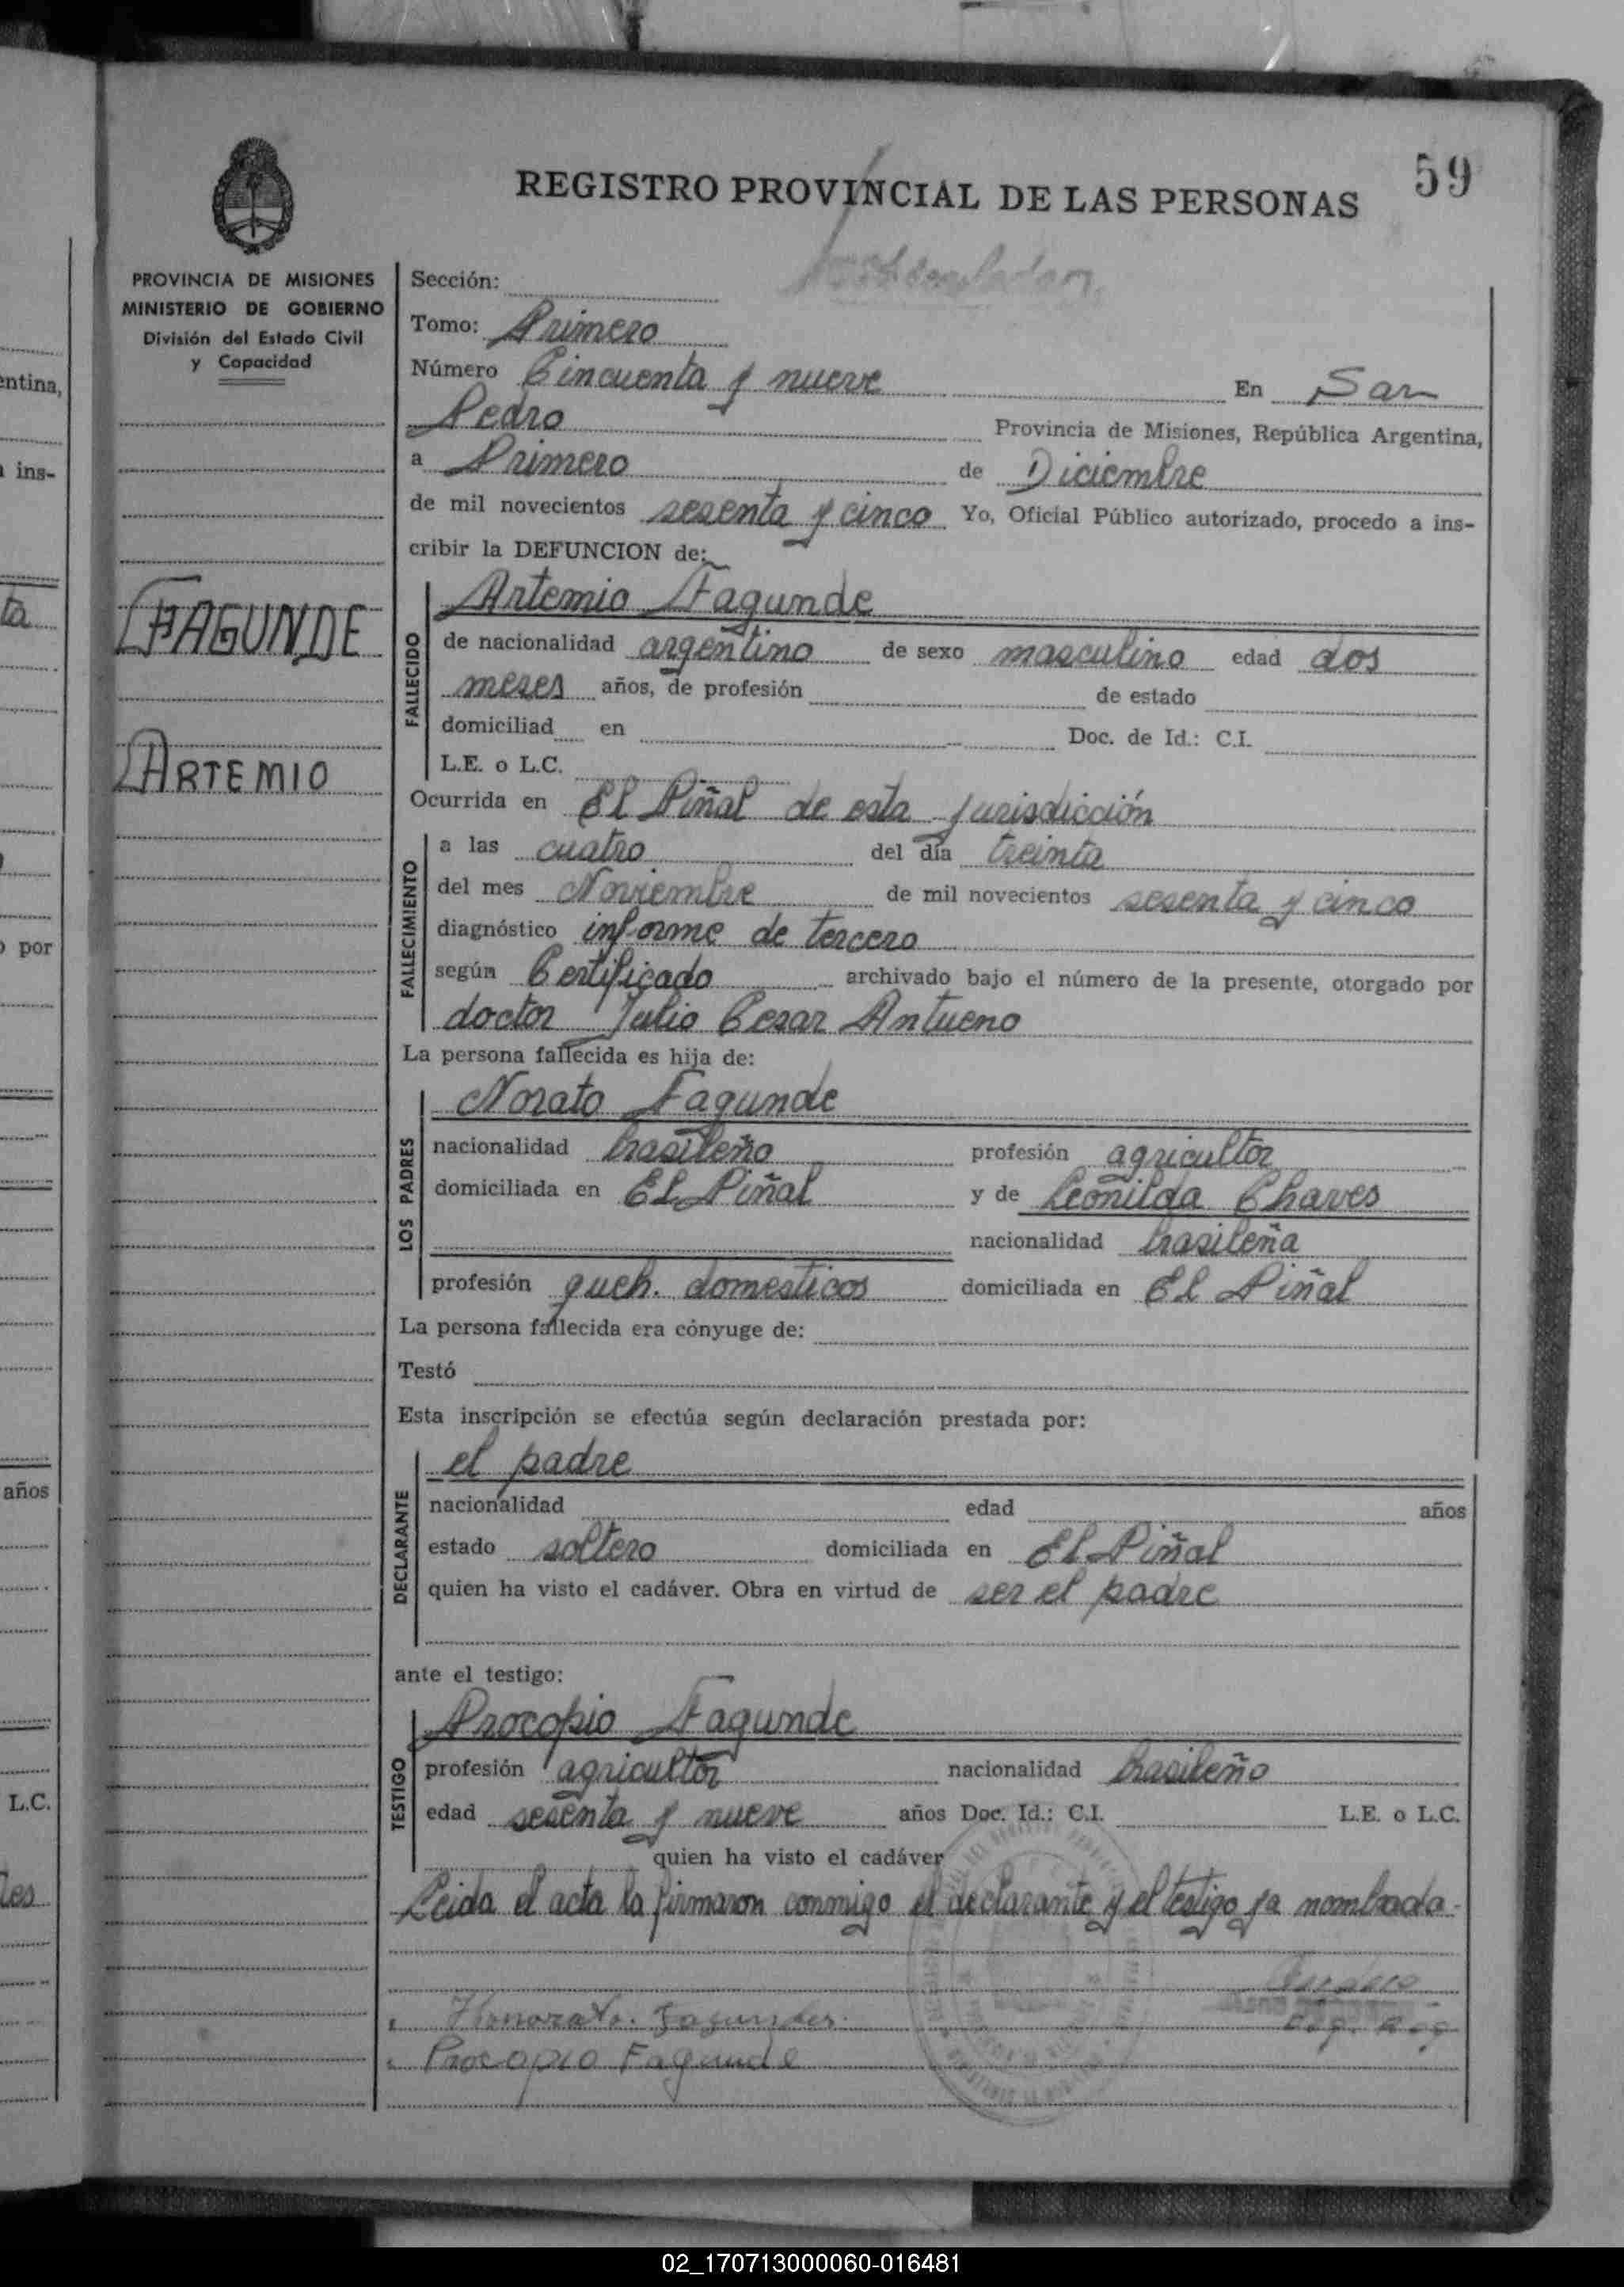 59
REGISTRO PROVINCIAL DE LAS PERSONAS
PROVINCIA DE MISIONES
MINISTERIO DE GOBIERNO
División del Estado Civil
y Capacidad
FAGUNDE
ARTEMIO
Sección:
Tomo: Primero
Número Cincuenta y nueve En San
Pedro Provincia de Misiones, República Argentina,
a Primero de Diciembre
de mil novecientos sesenta y cinco Yo, Oficial Público autorizado, procedo a ins-
cribir la DEFUNCION de:
FALLECIDO
Artemio Fagunde
de nacionalidad argentino de sexo masculino edad dos
meses años, de profesión de estado
domiciliad en Doc. de Id.: C.I.
L.E. o L.C.
Ocurrida en El Piñal de esta jurisdicción
FALLECIMIENTO
a las cuatro del día treinta
del mes Noviembre de mil novecientos sesenta y cinco
diagnóstico informe de tercero
según Certificado archivado bajo el número de la presente, otorgado por
doctor Julio Cesar Antueno
La persona fallecida es hija de:
LOS PADRES
Norato Fagunde
nacionalidad brasileño profesión agricultor
domiciliada en El Piñal y de Leonilda Chaves
nacionalidad brasileña
profesión queh. domesticos domiciliada en El Piñal
La persona fallecida era cónyuge de:
Testó
Esta inscripción se efectúa según declaración prestada por:
DECLARANTE
el padre
nacionalidad edad años
estado soltero domiciliada en El Piñal
quien ha visto el cadáver. Obra en virtud de ser el padre
ante el testigo:
TESTIGO
Procopio Fagunde
profesión agricultor nacionalidad brasileño
edad sesenta y nueve años Doc. Id.: C.I. L.E. o L.C.
quien ha visto el cadáver
Leida el acta la firmaron conmigo el declarante y el testigo ya nombrado.
Honorato. Fagundes.
Procopio Fagunde
entina,
ins-
ta
por
años
L.C.
les
02_170713000060-016481